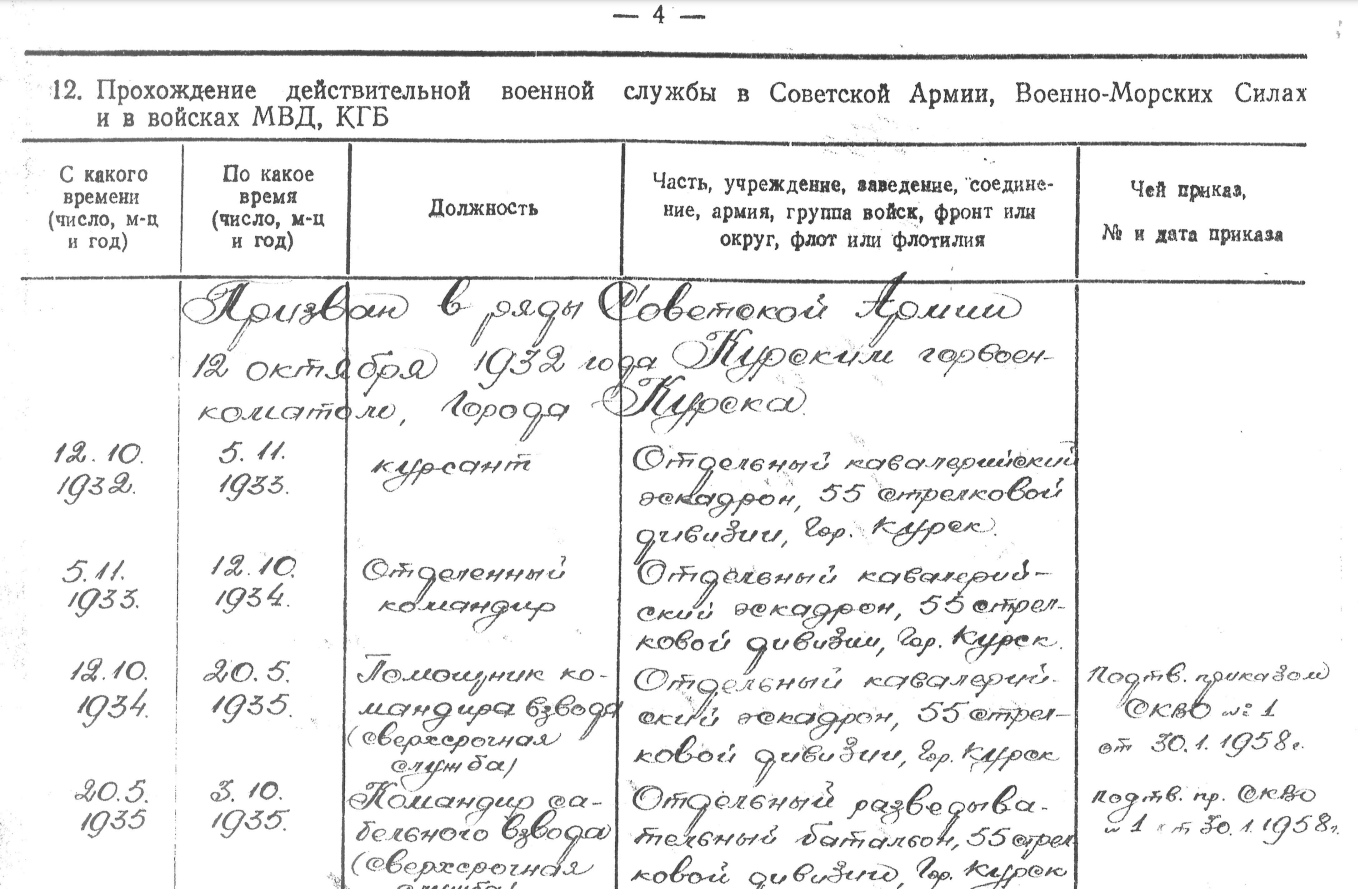 — 4 —
12. Прохождение действительной военной службы в Советской Армии, Военно-Морских Силах
и в войсках МВД, КГБ
С какого
времени
(число, м-ц
и год)
По какое
время
(число, м-ц
и год)
Должность
Часть, учреждение, заведение, соедине-
ние, армия, группа войск, фронт или
округ, флот или флотилия
Чей приказ,
№ и дата приказа
Призван в ряды Советской Армии
12 октября 1932 года Курским горвоен-
коматом, города Курска.
12.10.
1932.
5.11.
1933.
курсант
Отдельный кавалерийский
эскадрон, 55 стрелковой
дивизии, гор. Курск.
5.11.
1933.
12.10.
1934.
Отделенный
командир
Отдельный кавалерий-
ский эскадрон, 55 стрел-
ковой дивизии, гор. Курск.
12.10.
1934.
20.5.
1935.
Помощник ко-
мандира взвода
(сверхсрочная
служба)
Отдельный кавалерий-
ский эскадрон, 55 стрел-
ковой дивизии, гор. Курск
Подтв. приказом
СКВО № 1
от 30.1.1958г.
20.5.
1935
3.10.
1935.
Командир са-
бельного взвода
(сверхсрочная
служба)
Отдельный разведыва-
тельный батальон, 55 стрел-
ковой дивизии, гор. Курск
Подтв. пр. СКВО
№ 1 от 30.1.1958г.